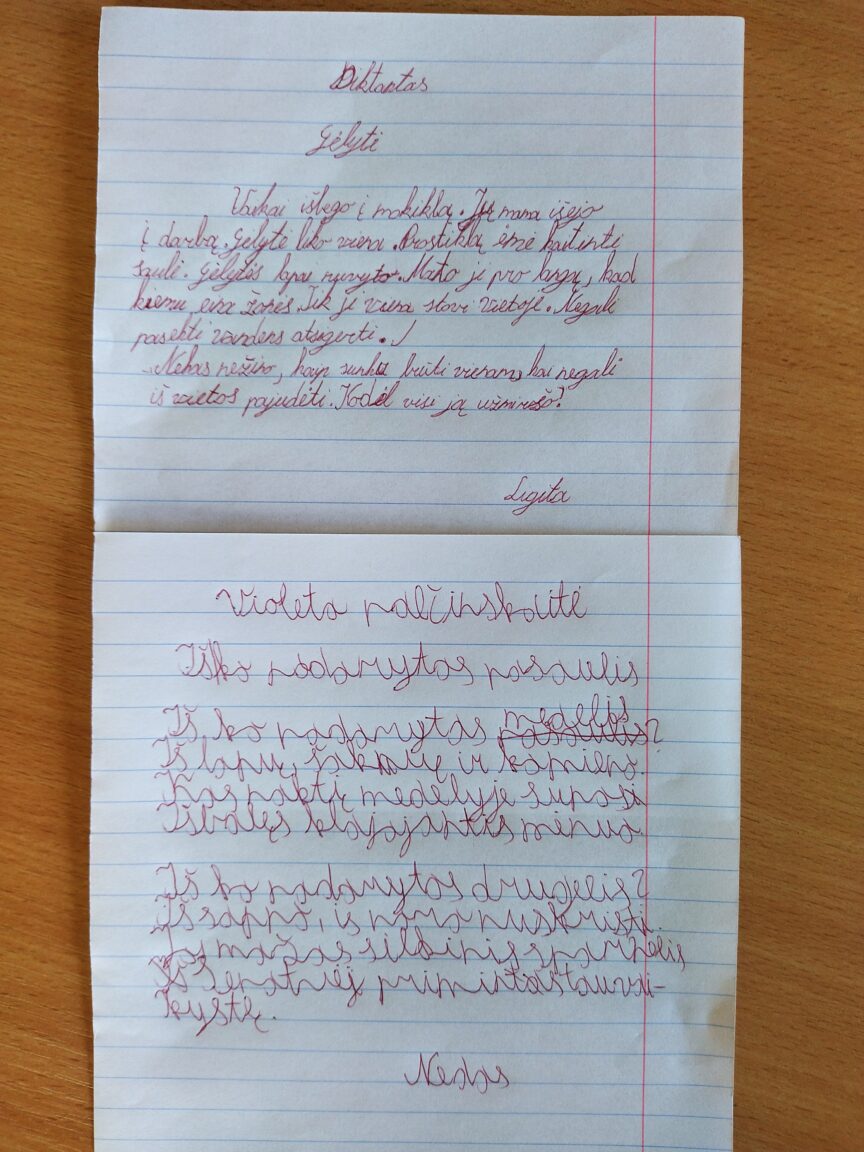 Diktantas
Gėlytė
Vaikai išbėgo į mokiklą. Jų mama išėjo
į darbą. Gėlytė liko viena. Prostiklą ėmė kaitinti
saulė. Gėlytės lapai nuvyto. Mato ji pro langą, kad
kieme eina žonės. Tik ji viena stovi vietoje. Negali
pasiekti vandens atsigerti.
Niekas nežino, kaip sunku būti vienam, kai negali
iš vietos pajudėti. Kodėl visi ją užmiršo?
Ligita
Violeta palčinskaitė
Iš ko padarytas pasaulis
Iš ko padarytas medelis?
Iš lapų, šaknių ir kamieno.
Kas naktį medelyje supasi
Išbalęs klajojantis mėnuo
Iš ko padarytas drugelis?
Iš sapno, iš noro nuskristi.
Jos mažas šilkinis sparnelis
Iš lėnotnėj primintas tauvai-
kystę.
Nedas